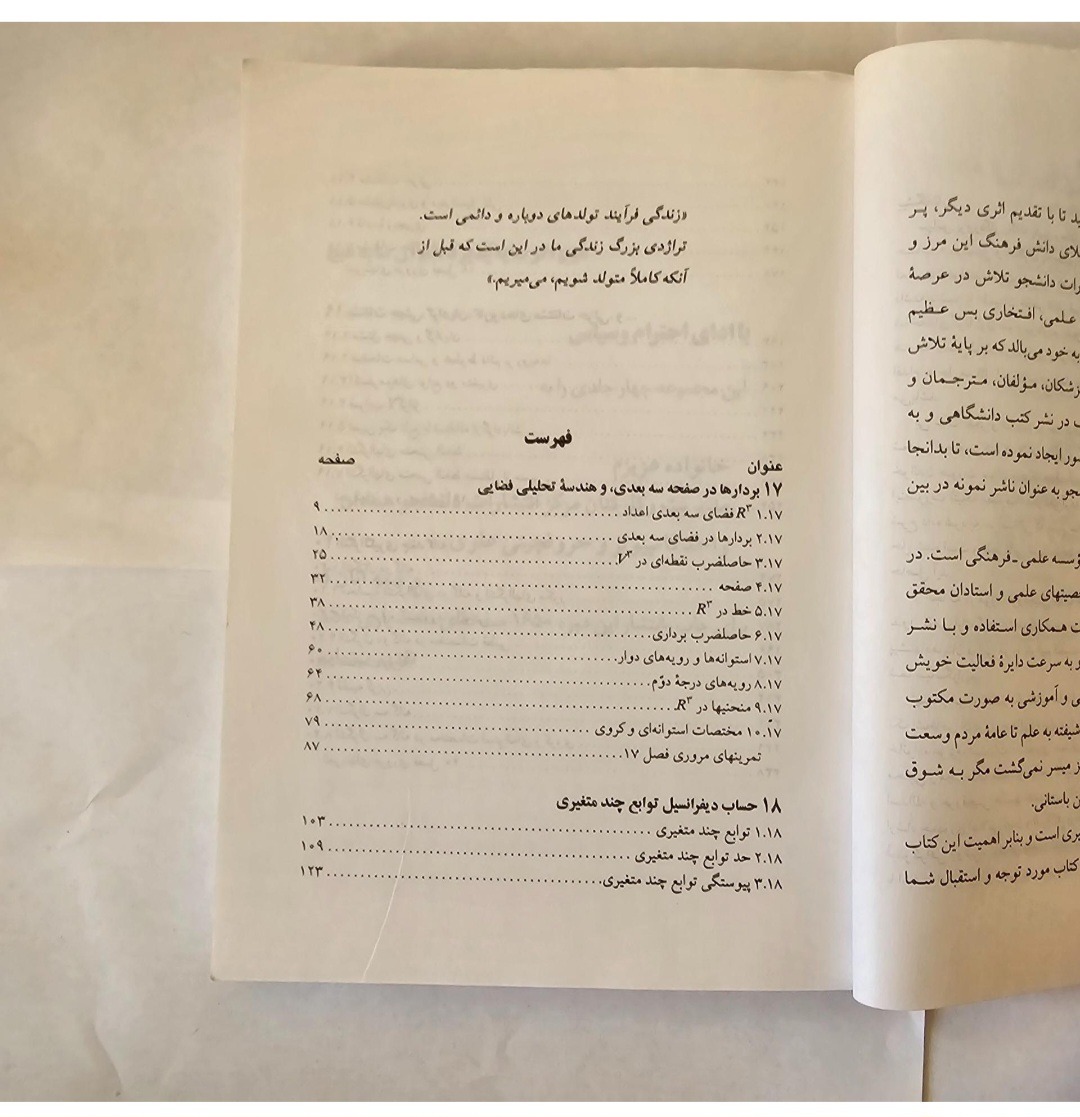 «زندگی فرآیند تولدهای دوباره و دائمی است.
تراژدی بزرگ زندگی ما در این است که قبل از
آنکه کاملاً متولد شویم، می‌میریم.»
فهرست
عنوان صفحه
۱۷ بردارها در صفحه سه بعدی، و هندسهٔ تحلیلی فضایی
۱.۱۷ R³ فضای سه بعدی اعداد ........ ۹
۲.۱۷ بردارها در فضای سه بعدی ........ ۱۸
۳.۱۷ حاصلضرب نقطه‌ای در V³ ........ ۲۵
۴.۱۷ صفحه ........ ۳۲
۵.۱۷ خط در R³ ........ ۳۸
۶.۱۷ حاصلضرب برداری ........ ۴۸
۷.۱۷ استوانه‌ها و رویه‌های دوار ........ ۶۰
۸.۱۷ رویه‌های درجهٔ دوّم ........ ۶۴
۹.۱۷ منحنیها در R³ ........ ۶۸
۱۰.۱۷ مختصات استوانه‌ای و کروی ........ ۷۹
تمرینهای مروری فصل ۱۷ ........ ۸۷
۱۸ حساب دیفرانسیل توابع چند متغیری
۱.۱۸ توابع چند متغیری ........ ۱۰۳
۲.۱۸ حد توابع چند متغیری ........ ۱۰۹
۳.۱۸ پیوستگی توابع چند متغیری ........ ۱۲۳
ید تا با تقدیم اثری دیگر، پر
لای دانش فرهنگ این مرز و
رات دانشجو تلاش در عرصهٔ
علمی، افتخاری بس عظیم
به خود می‌بالد که بر پایهٔ تلاش
زشکان، مؤلفان، مترجمان و
در نشر کتب دانشگاهی و به
ور ایجاد نموده است، تا بدانجا
جو به عنوان ناشر نمونه در بین
ؤسسه علمی ـ فرهنگی است. در
صیتهای علمی و استادان محقق
ت همکاری استفاده و با نشر
و به سرعت دایرهٔ فعالیت خویش
ی و آموزشی به صورت مکتوب
شیفته به علم تا عامهٔ مردم وسعت
ز میسر نمی‌گشت مگر به شوق
ن باستانی.
یری است و بنابر اهمیت این کتاب
کتاب مورد توجه و استقبال شما